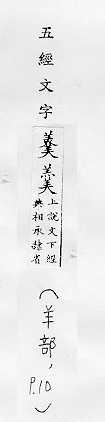 五經文字
羹
上說文下經
典相承隸省
(羊部,
P.10)